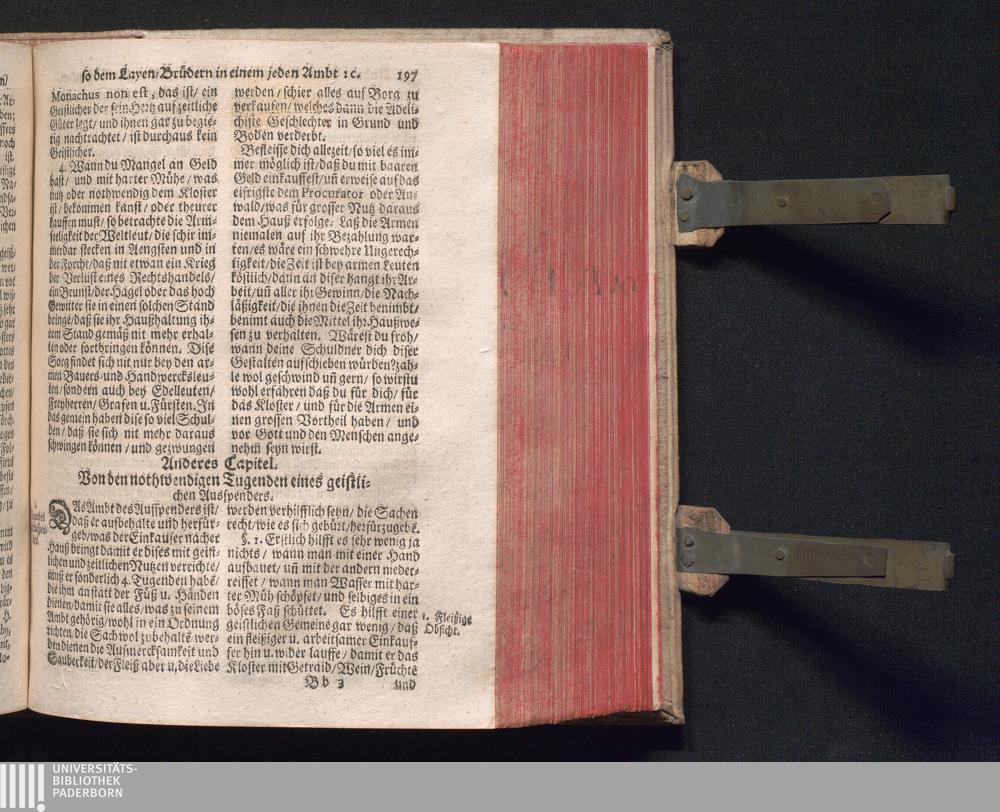 so dem Layen-Brüdern in einem jeden Ambt ꝛc. 197
Monachus non est, das ist/ ein
Geistlicher der sein Hertz auf zeitliche
Güter legt/ und ihnen gar zu begie-
rig nachtrachtet/ ist durchaus kein
Geistlicher.
4. Wann du Mangel an Geld
hast/ und mit harter Mühe/ was
nutz oder nothwendig dem Kloster
ist/ bekommen kanst/ oder theurer
kauffen must/ so betrachte die Arm-
seeligkeit der Weltleut/ die schir im-
merdar stecken in Aengsten und in
der Forcht/ daß nit etwan ein Krieg
der Verlust eines Rechtshandels/
ein Brunst/ der Hagel oder das hoch
Gewitter sie in einen solchen Stand
bringe/ daß sie ihr Haußhaltung ih-
rem Stand gemäß nit mehr erhal-
ten oder fortbringen können. Dise
Sorg findet sich nit nur bey den ar-
men Bauers- und Handwercksleu-
ten/ sondern auch bey Edelleuten/
Freyherren/ Grafen u. Fürsten. In
das gemein haben dise so viel Schul-
den/ daß sie sich nit mehr daraus
schwingen können/ und gezwungen
werden/ schier alles auf Borg zu
verkaufen/ welches dann die Adeli-
chiste Geschlechter in Grund und
Boden verderbt.
Befleisse dich allezeit/ so viel es im-
mer möglich ist/ daß du mit baaren
Geld einkauffest/ uñ erweise auf das
eifrigste dem Procurator oder An-
wald/ was für grosser Nutz daraus
dem Hauß erfolge. Laß die Armen
niemalen auf ihr Bezahlung war-
ten/ es wäre ein schwehre Ungerech-
tigkeit/ die Zeit ist bey armen Leuten
köstlich/ dann an diser hangt ihr Ar-
beit/ uñ aller ihr Gewinn/ die Nach-
läßigkeit/ die ihnen die Zeit benimbt/
benimt auch die Mittel ihr Haußwe-
sen zu verhalten. Wärest du froh/
wann deine Schuldner dich diser
Gestalten aufschieben würden? zah-
le wol geschwind uñ gern/ so wirstu
wohl erfahren daß du für dich/ für
das Kloster/ und für die Armen ei-
nen grossen Vortheil haben/ und
vor Gott und den Menschen ange-
nehm seyn wirst.
Anderes Capitel.
Von den nothwendigen Tugenden eines geistli-
chen Ausspenders.
DAs Ambt des Ausspenders ist/
daß er aufbehalte und herfür-
geb/ was der Einkaufer nacher
Hauß bringt damit er dises mit geist-
lichen und zeitlichen Nutzen verrichte/
muß er sonderlich 4. Tugenden habē/
die ihm anstatt der Füß u. Händen
dienen/ damit sie alles/ was zu seinem
Ambt gehörig/ wohl in ein Ordnung
richten die Sach wol zubehaltē wer-
den dienen die Aufmercksamkeit und
Sauberkeit/ der Fleiß aber u. die Liebe
werden verhilfflich seyn/ die Sachen
recht/ wie es sich gebürt/ herfürzugebē.
§. 1. Erstlich hilfft es sehr wenig ja
nichts/ wann man mit einer Hand
aufbauet/ uñ mit der andern nieder-
reisset/ wann man Wasser mit har-
ter Müh schöpfet/ und selbiges in ein
böses Faß schüttet. Es hilfft einer
geistlichen Gemeine gar wenig/ daß
ein fleißiger u. arbeitsamer Einkauf-
fer hin u. wider lauffe/ damit er das
Kloster mit Getraid/ Wein/ Früchte
1. Fleißige
Obsicht.
Bb 3 und
UNIVERSITÄTS-
BIBLIOTHEK
PADERBORN